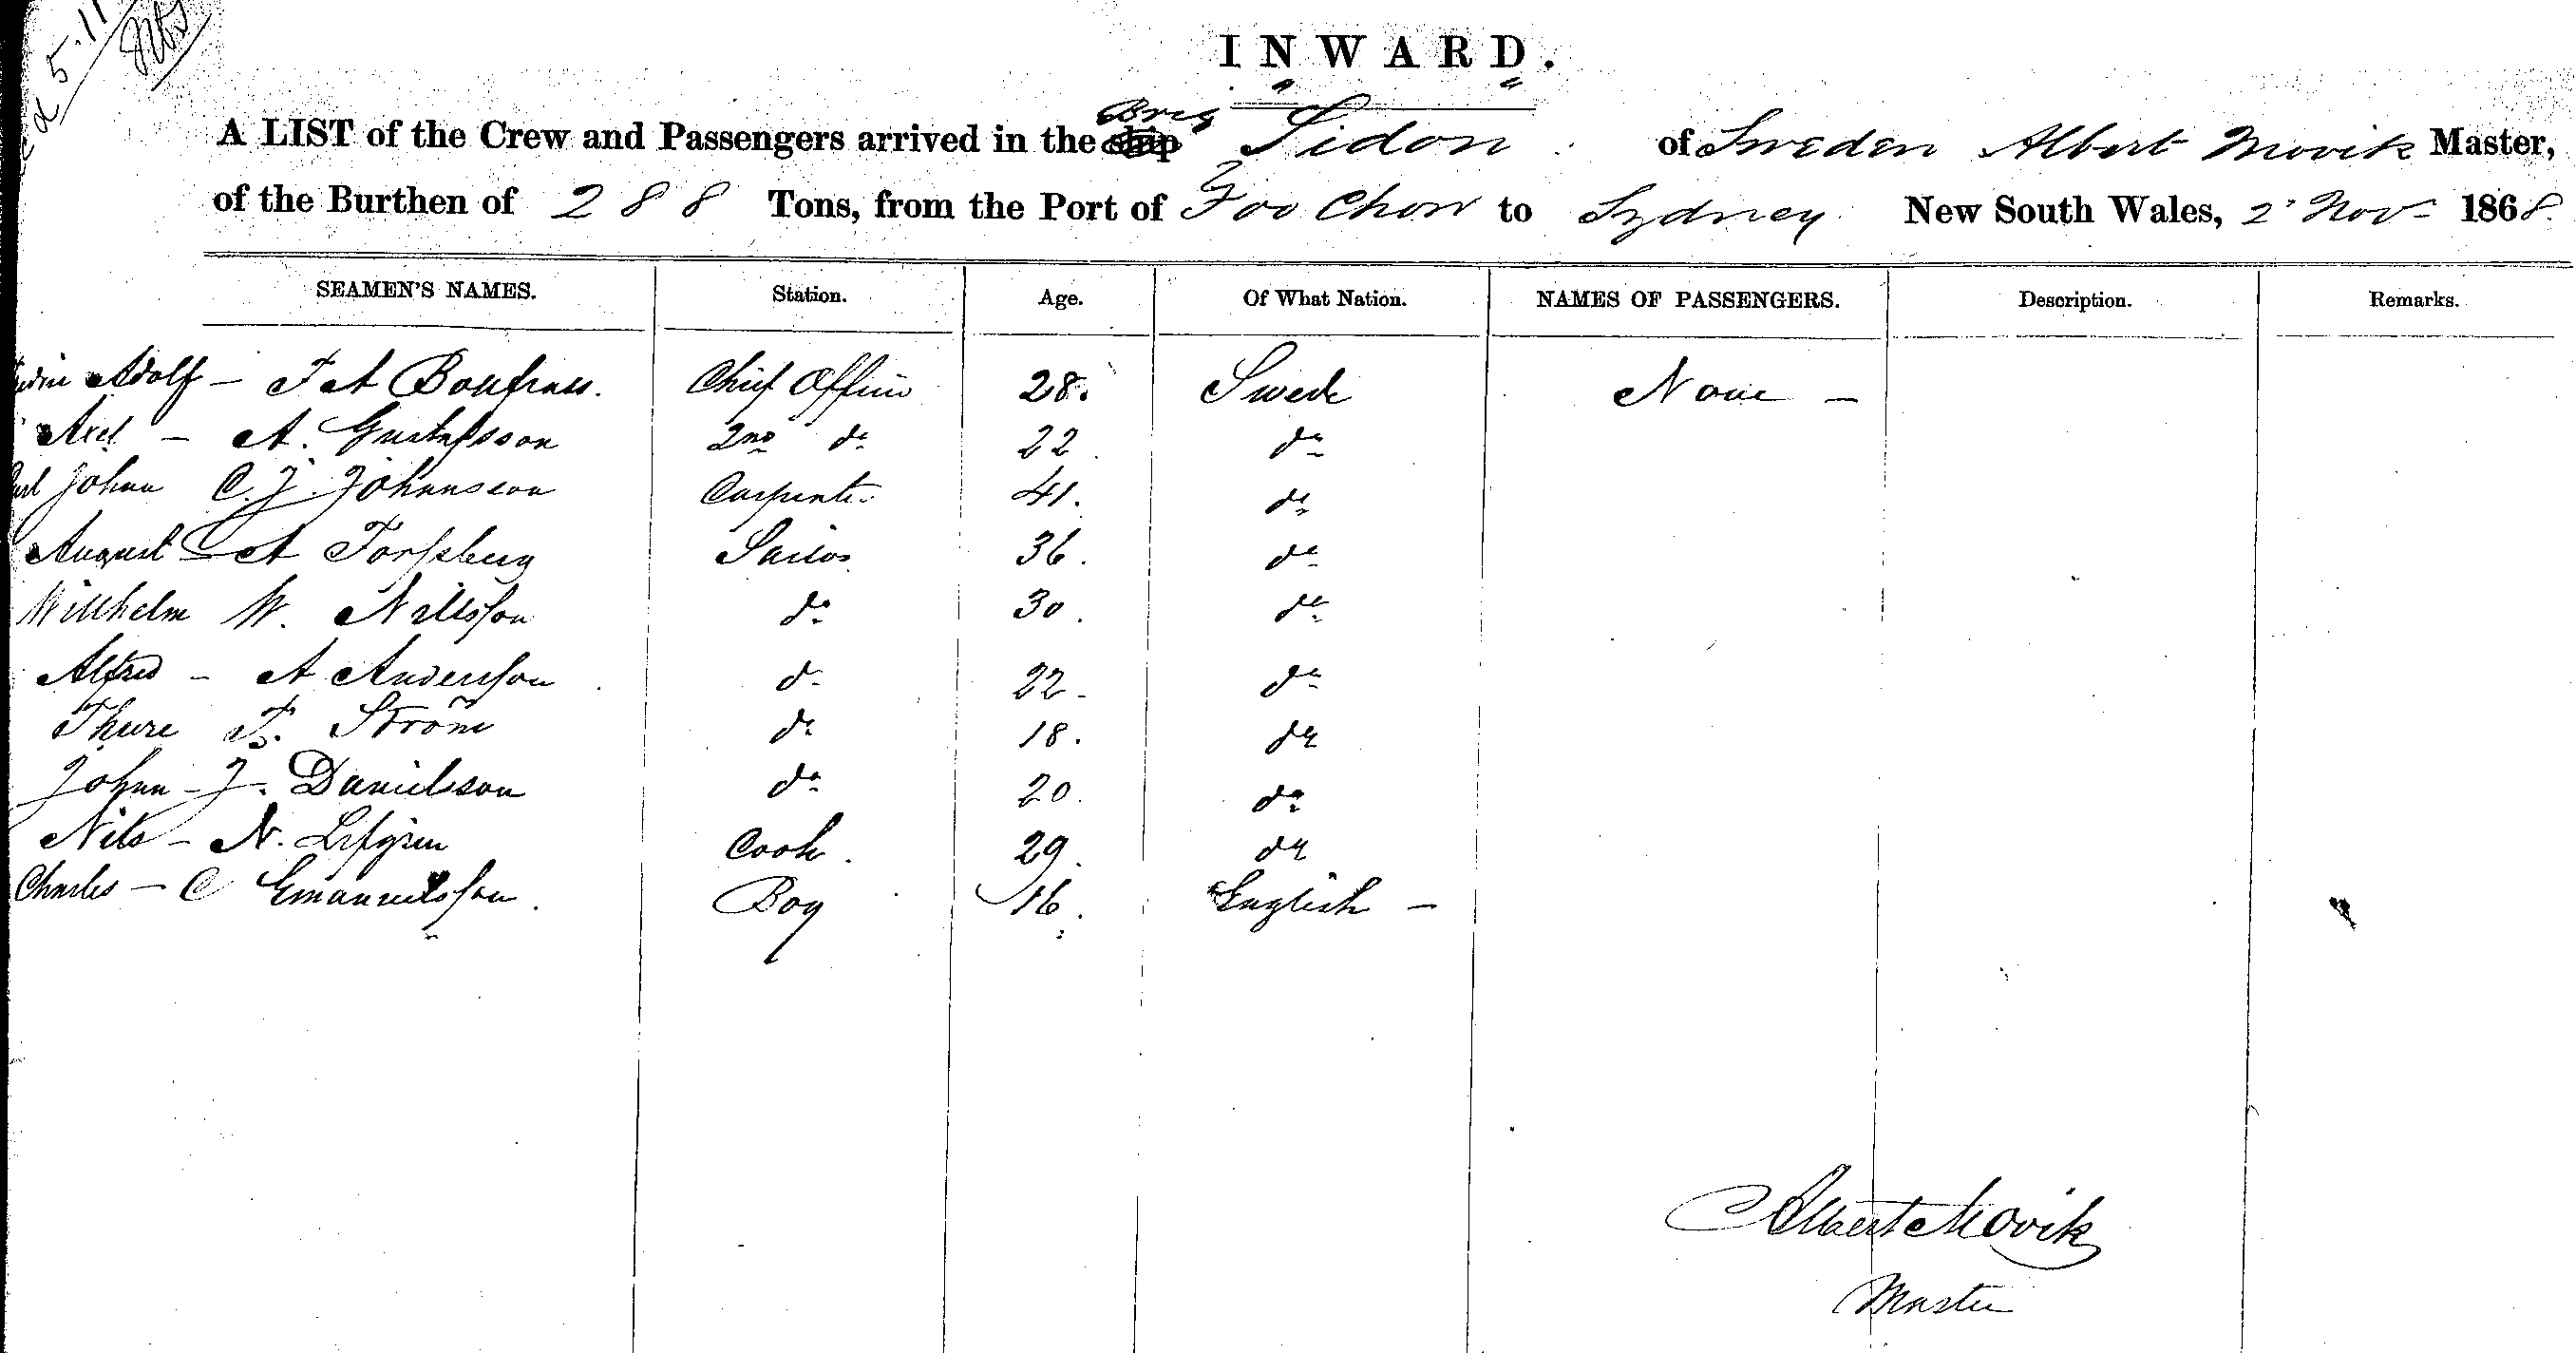 5.11
INWARD.
A LIST of the Crew and Passengers arrived in the ship Brig Sidon of Sweden Albert Movik Master,
of the Burthen of 288 Tons, from the Port of Foo Chow to Sydney New South Wales, 2 Nov 1868.
SEAMEN'S NAMES. Station. Age. Of What Nation. NAMES OF PASSENGERS. Description. Remarks.
Adolf - F A Chief Officer 28. Swede None -
Axel - A. Gustafsson 2nd do 22 do
Johan C. J. Johansson Carpenter 41. do
August - A Forssberg Sailor 36. do
Wilhelm W. Nilsson do 30. do
Alfred - A Andersson do 22 - do
Thure T. Ström do 18. do
Johan - J. Danielsson do 20. do
Nils - N. Löfgren Cook. 29. do
Charles - C Emanuelsson. Boy 16. English -
Albert Movik
Master